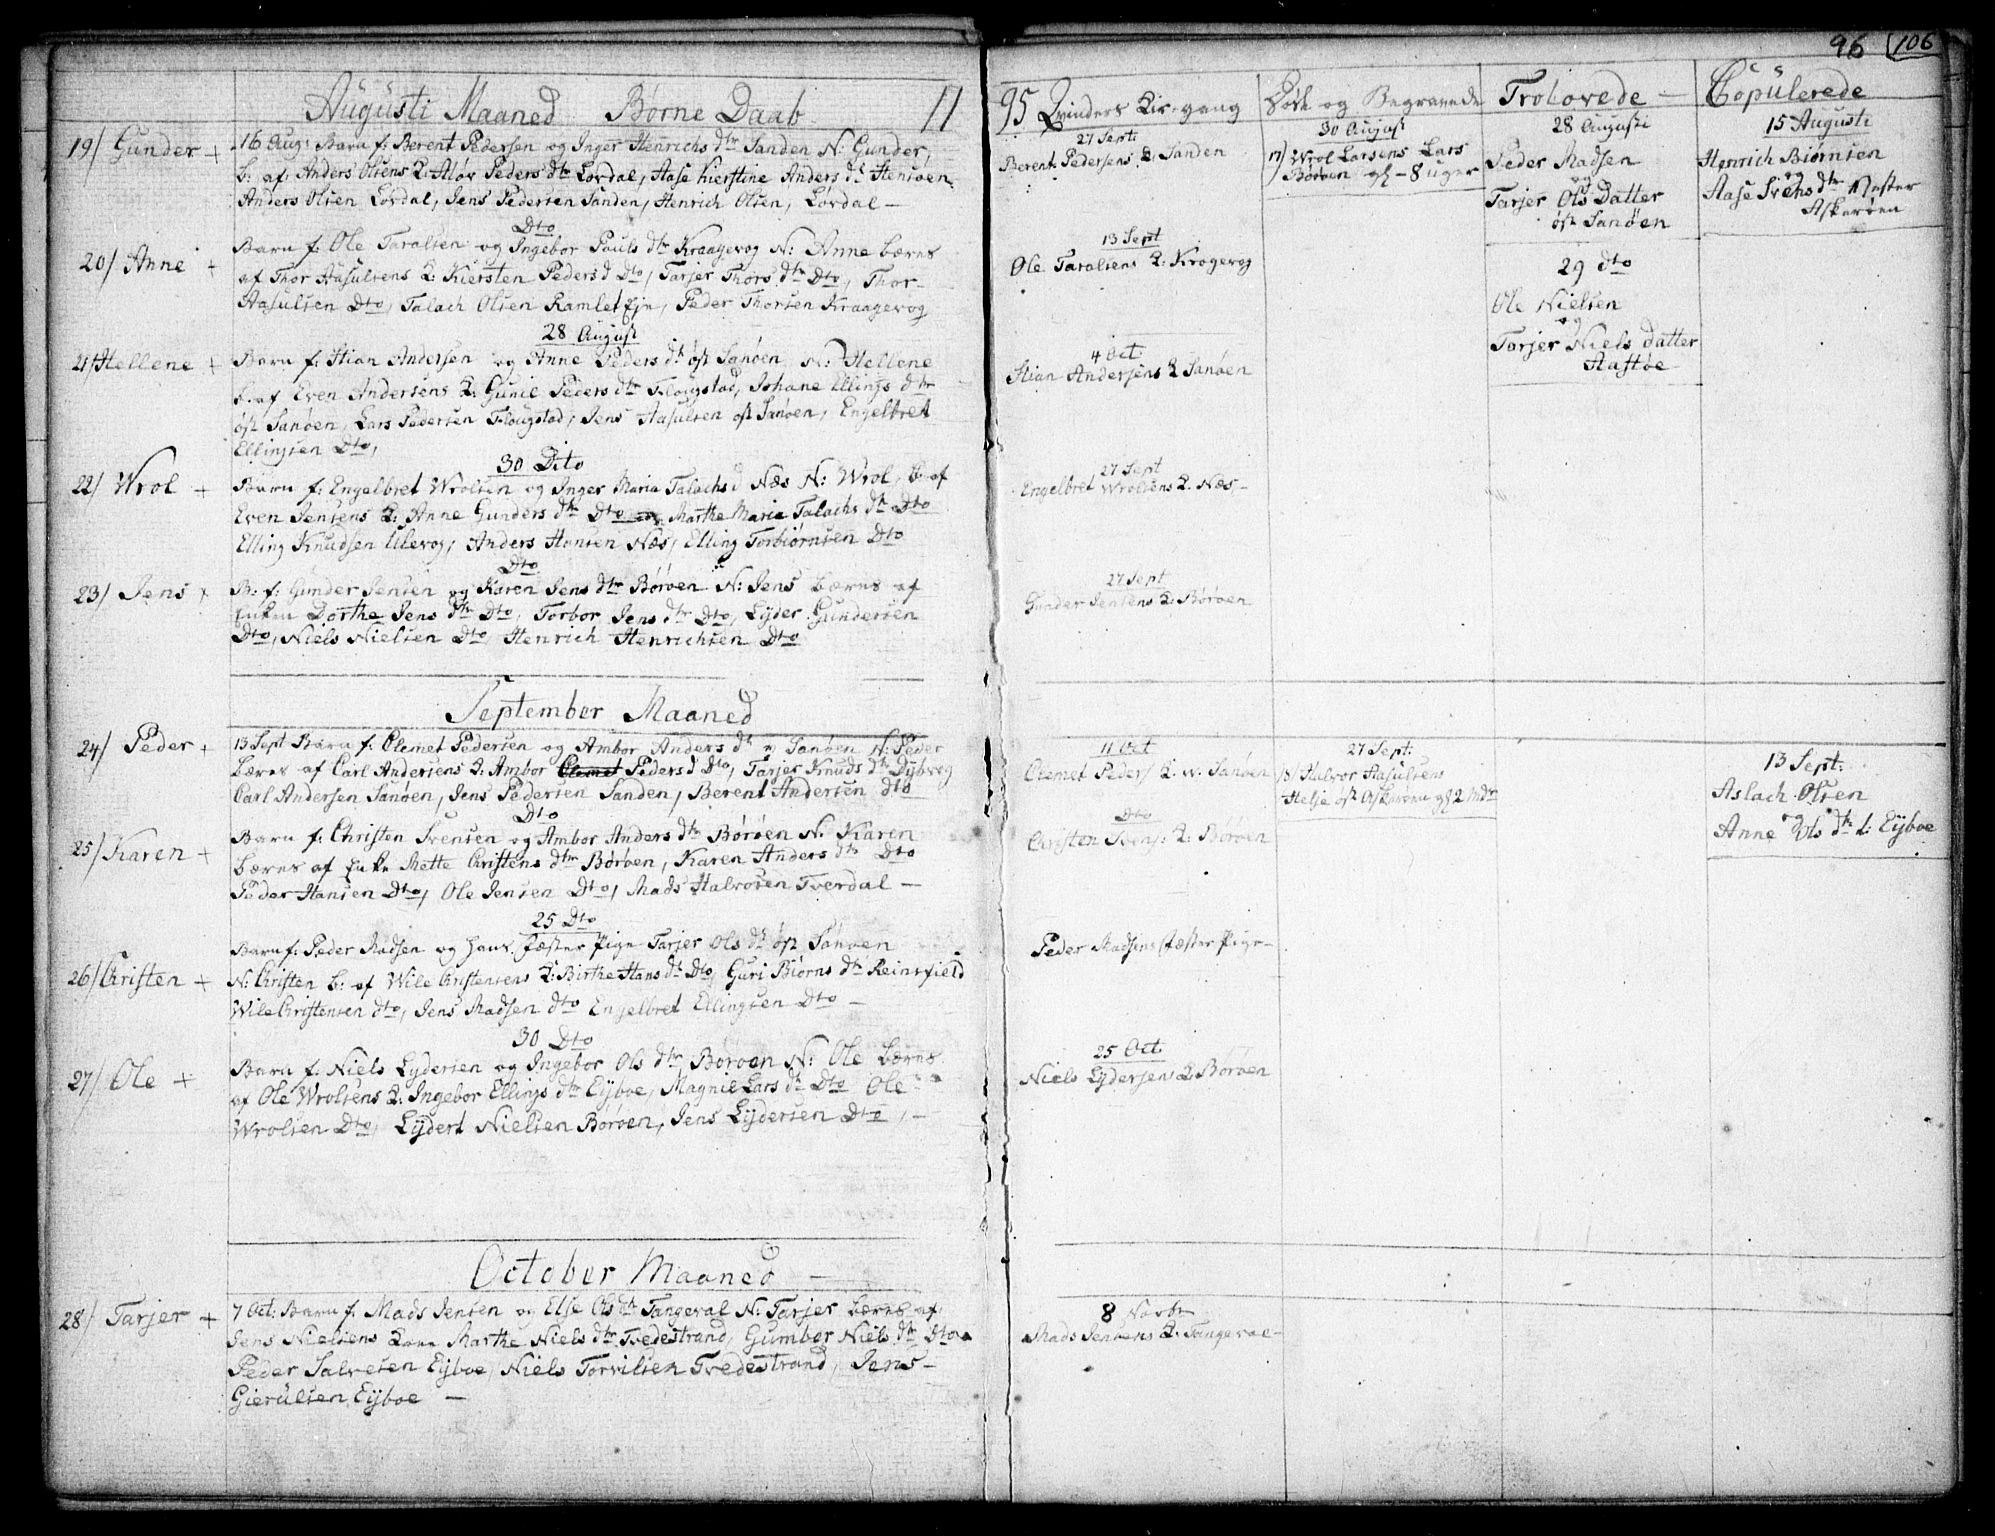 96 106
Augusti Maaned Børne Daab 11
19/ Gunder +
16 Aug: Barn f: Berent Pedersen og Inger Henrichs dtr Sanden N: Gunder,
b: af Anders Olsens Q: Aløv Peders dtr Lordal, Aase kierstine Anders dtr Stensøen,
Anders Olsen Lordal, Jens Pedersen Sanden, Henrich Olsen, Lørdal —
Dto
20/ Anne +
Barn f: Ole Taralsen og Ingebor Pouls dtr Kraagevog N: Anne bæres
af Thor Aasulsens Q: Kiersten Peders d Dto, Tarjer Thors dtr Dto, Thor
Aasulsen Dto, Talach Olsen Ramlet Eje, Peder Thorsen Kraagevog
28 August
21/ Hellene +
Barn f: Stian Andersen og Anne Peders dtr øst Sanøen N: Hellene
b: af Even Andersens Q: Gunil Peders dtr Flougstad, Johane Ellings dtr
øst Sanøen, Lars Pedersen Flougstad, Jens Aasulsen øst Sanøen, Engelbret
Ellingsen Dto,
30 Dito
22/ Wrol +
Barn f: Engelbret Wrolsen og Inger Maria Talachs d Næs N: Wrol, b: af
Even Jensens Q: Anne Gunders dtr Dto Marthe Marie Talachs dtr Dto
Elling Knudsen Ulevog, Anders Hansen Næs, Elling Torbiørnsen Dto
Dto
23/ Jens +
B: f: Gunder Jensen og Karen Jens dtr Børøen N: Jens bæres af
Enken Dorthe Jens dtr Dto, Torbor Jens dtr Dto, Lyder Gundersen
Dto, Niels Nielsen Dto, Henrich Henrichsen Dto
September Maaned
24/ Peder +
13 Sept Barn f: Clemet Pedersen og Ambor Anders dtr w Sanøen N: Peder
bæres af Carl Andersens Q: Ambor Clemet Peders d Dto, Tarjer Knuds dtr Dybvog
Carl Andersen Sanøen, Jens Pedersen Sanden, Berent Andersen Dto
Dto
25/ Karen +
Barn f: Christen Svensen og Ambor Anders dtr Børøen N: Karen
bæres af Enke Mette Christens dtr Børøen, Karen Anders dtr Dto
Peder Hansen Dto, Ole Jensen Dto, Mads Halvorsen Tverdal —
25 Dto
Barn f: Peder Madsen og hans fæster Pige Tarjer Ols dtr øst Sanøen
26/ Christen +
N: Christen b: af Wile Christensens Q: Birthe Hans dtr Dto, Guri Biørns dtr Reinsfield
Wile Christensen dto, Jens Madsen dto Engelbret Ellingsen Dto —
30 Dto
27/ Ole +
Barn f: Niels Lydersen og Ingebor Ols dtr Børøen N: Ole bæres
af Ole Wrolsens Q: Ingebor Ellings dtr Eijboe, Magnil Lars dtr Dto Ole
Wrolsen Dto, Lijdert Nielsen Børøen, Jens Lijdersen Dto, —
October Maaned —
28/ Tarjer +
7 Oct: Barn f: Mads Jensen og Else Ols dtr Tangeval N: Tarjer bæres af
Jens Nielsens Qone Marthe Niels dtr Tvedestrand, Gumbor Niels dtr Dto
Peder Salvesen Eijboe, Niels Torvilsen Tvedestrand, Jens
Gierulsen Eijboe —
95 Qvinders Kir-gang
27 Septi
Berent Pedersens Q: Sanden
13 Sept
Ole Taralsens Q: Krogevog
4 Oct:
Stian Andersens Q Sanøen
27 Sept
Engelbret Wrolsens Q. Næs —
27 Sept
Gunder Jensens Q: Børøen
11 Oct
Clemet Peders Q. w. Sanøen
Dto
Christen Svens: Q: Børøen
Peder Madsens fæster Pige —
25 Oct
Niels Lydersens Q Børøen
8 Novbr
Mads Jensens Q: Tangevae —
Døde og Begravede
30 August
17/ Wrol Larsens Lars
Børøen gl — 8 uger
27 Sept:
18/ Halvor Aasulsens
Helje øst Askerøen gl 2 Mdr
Trolovede —
28 Augusti
Peder Madsen
og
Tarjer Ols Datter
øst Sanøen
29 dto
Ole Nielsen
og
Torjer Niels Datter
Aastøe
Copulerede
15 Augusti
Henrich Biørnsen
og
Aase Svens dtr Mester
Askerøen
13 Sept:
Aslach Olsen
og
Anne Ols dtr l: Eijboe